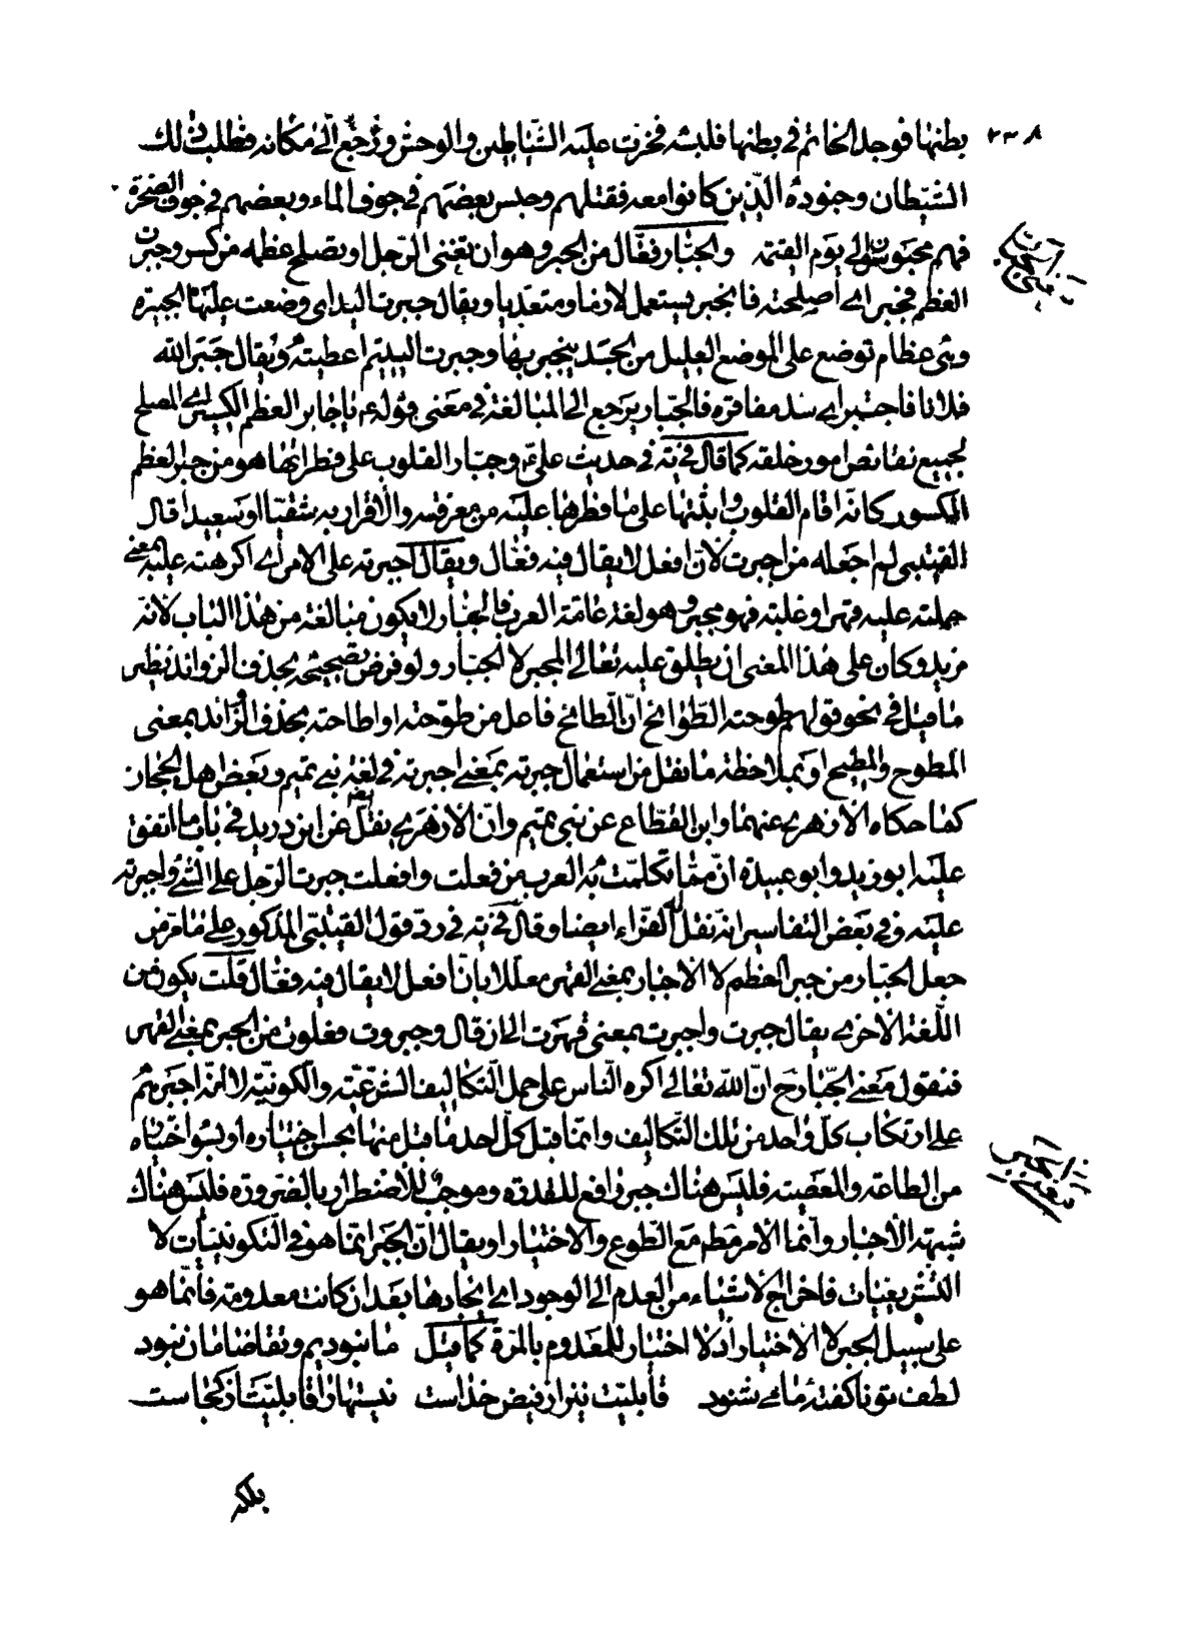 ٢٣٨
بطنها فوجد الخاتم فى بطنها فلبسه فخرت عليه الشياطين والوحش ورجع الى مكانه فطلب ذلك
الشيطان وجنوده الذين كانوا معه فقتلهم وحبس بعضهم فى جوف الماء وبعضهم فى جوف الصخرة
فهم محبوسون الى يوم القيمة والجبار فعّال من الجبر وهو ان تغنى الرجل او تصلح عظمه من كسر وجبرت
العظم فجبر اى اصلحته فانجبر يستعمل لازما ومتعديا ويقال جبرت اليد اى وضعت عليها الجبيرة
وهى عظام توضع على الموضع العليل من الجسد ينجبر بها وجبرت اليتيم اعطيته ويقال جبر الله
فلانا فاجتبر اى سد مفاقره فالجبار يرجع الى المبالغة فى معنى قوله يا جابر العظم الكسير اى المصلح
لجميع نقائص امور خلقه كما قال فى يه فى حديث على وجبار القلوب على فطراتها هو من جبر العظم
المكسور كانه اقام القلوب واثبتها على ما فطرها عليه من معرفته والاقرار به شقيا او سعيدا قال
القتيبى لم اجعله من اجبرت لان افعل لا يقال فيه فعّال ويقال اجبرته على الامر اى اكرهته عليه بمعنى
حملته عليه قهرا وغلبة فهو مجبر وهو لغة عامة العرب فالجبار لا يكون مبالغة من هذا الباب لانه
مزيد وكان على هذا المعنى ان يطلق عليه تعالى المجبر لا الجبار ولو فرض تصحيحه بحذف الزوائد نظير
ما قيل فى نحو قولهم طوحته الطوائح ان الطائح فاعل من طوحته او اطاحته بحذف الزائد بمعنى
المطوح والمطيح او بملاحظة ما نقل من استعمال جبرته بمعنى اجبرته فى لغة بنى تميم وبعض اهل الحجاز
كما حكاه الازهرى عنهما وابن القطاع عن بنى تميم وان الازهرى نقل عن ابن دريد فى باب ما اتفق
عليه ابو زيد وابو عبيدة ان مما تكلمت به العرب من فعلت وافعلت جبرت الرجل على الشئ واجبرته
عليه وفى بعض التفاسير انه نقل الفراء ايضا وقال فى يه فى رد قول القتيبى المذكور على ما مر من
جعل الجبار من جبر العظم لا الاجبار بمعنى القهر معللا بان افعل لا يقال فيه فعّال قلت يكون من
اللغة الاخرى يقال جبرت واجبرت بمعنى قهرت الى ان قال وجبروت فعلوت من الجبر بمعنى القهر
فنقول معنى الجبار ح ان الله تعالى اكره الناس على حمل التكاليف الشرعية والكونية لا انه اجبرهم
على ارتكاب كل واحد من تلك التكاليف وانما قبل كل احد ما قبل منها بحسن اختياره او بسوء اختياره
من الطاعة والمعصية فليس هناك جبر رافع للقدرة وموجب للاضطرار بالضرورة فليس هناك
شبهة الاجبار وانما الامر مع الطوع والاختيار او يقال ان الجبر انما هو فى التكوينيات لا
التشريعيات فاخراج الاشياء من العدم الى الوجود اى ايجادها بعد ان كانت معدومة فانما هو
على سبيل الجبر لا الاختيار اذ لا اختيار للمعدوم بالمرة كما قيل ما نبوديم وتقاضامان نبود
لطف تو ناگفتهٔ ما مى شنود قابليت نيز از فيض خداست نيستها را قابليت از كجاست
بلكه